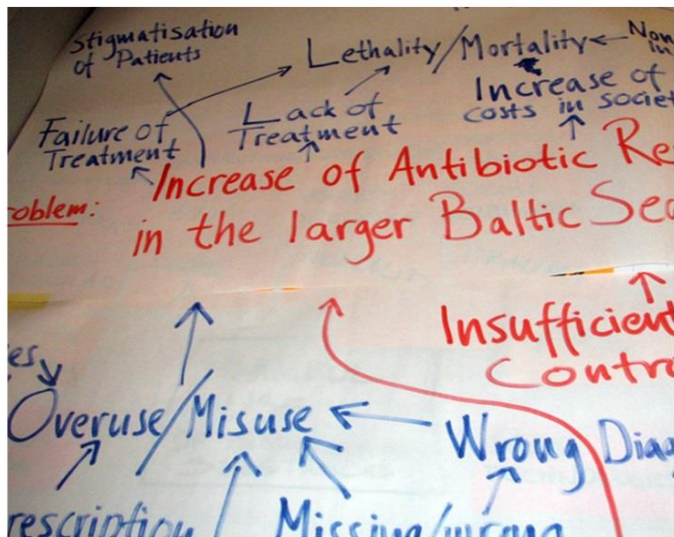 Stigmatisation
of Patients
Lethality/Mortality
Increase of
costs in societ
Lack of
Treatment
Failure of
Treatment
oblem: Increase of Antibiotic Re
in the larger Baltic Sea
Insufficient
Contr
es
Overuse/Misuse
Wrong Diag
rescription
Missing/wrong